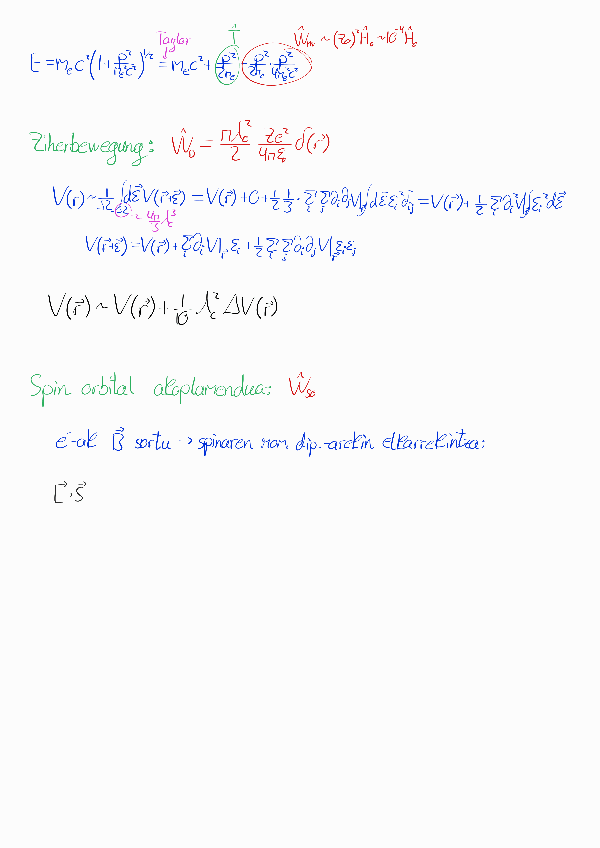 Taylor T̂ Ŵₘᵥ ~ (zα)² Ĥ₀ ~ 10⁻⁴ Ĥ₀
E = mₑc² (1 + p²/mₑ²c²)^1/2 = mₑc² + p²/2mₑ - p²/2mₑ · p²/4mₑ²c²
Ziherbewegung: Ŵ_D = πλc²/2 ze²/4πε₀ δ(r⃗)
V(r) ~ 1/Ω ∫dε⃗ V(r⃗+ε⃗) = V(r⃗) + 0 + 1/2 1/3 · Σᵢ Σⱼ ∂ᵢ∂ⱼV| ∫dε⃗ εᵢ² δᵢⱼ = V(r⃗) + 1/2 Σ ∂ᵢ²V| ∫εᵢ² dε⃗
Ω ~ 4π/3 λc³
V(r⃗+ε⃗) = V(r⃗) + Σᵢ ∂ᵢV|ᵣ εᵢ + 1/2 Σᵢ Σⱼ ∂ᵢ∂ⱼV|ᵣ εᵢεⱼ
V(r⃗) ~ V(r⃗) + 1/10 λc² ΔV(r⃗)
Spin orbital akoplamendua: Ŵ_so
e⁻-ak B⃗ sortu → spinaren mom dip.-arekin elkarrekintza:
L⃗·S⃗